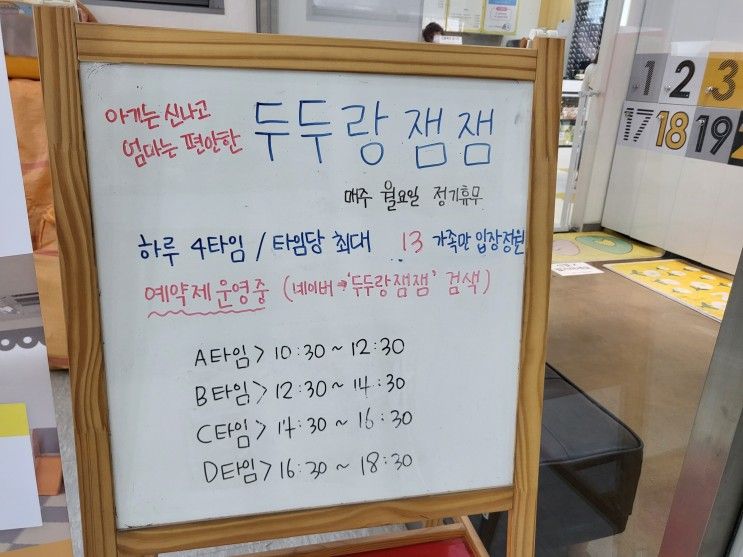 아기는 신나고
엄마는 편안한
두두랑 잼잼
매주 월요일 정기휴무
하루 4타임 / 타임당 최대 13 가족만 입장정원
예약제 운영중 (네이버→'두두랑잼잼' 검색)
A타임> 10:30~12:30
B타임> 12:30~14:30
C타임> 14:30~16:30
D타임> 16:30~18:30
1 2 3
17 18 19